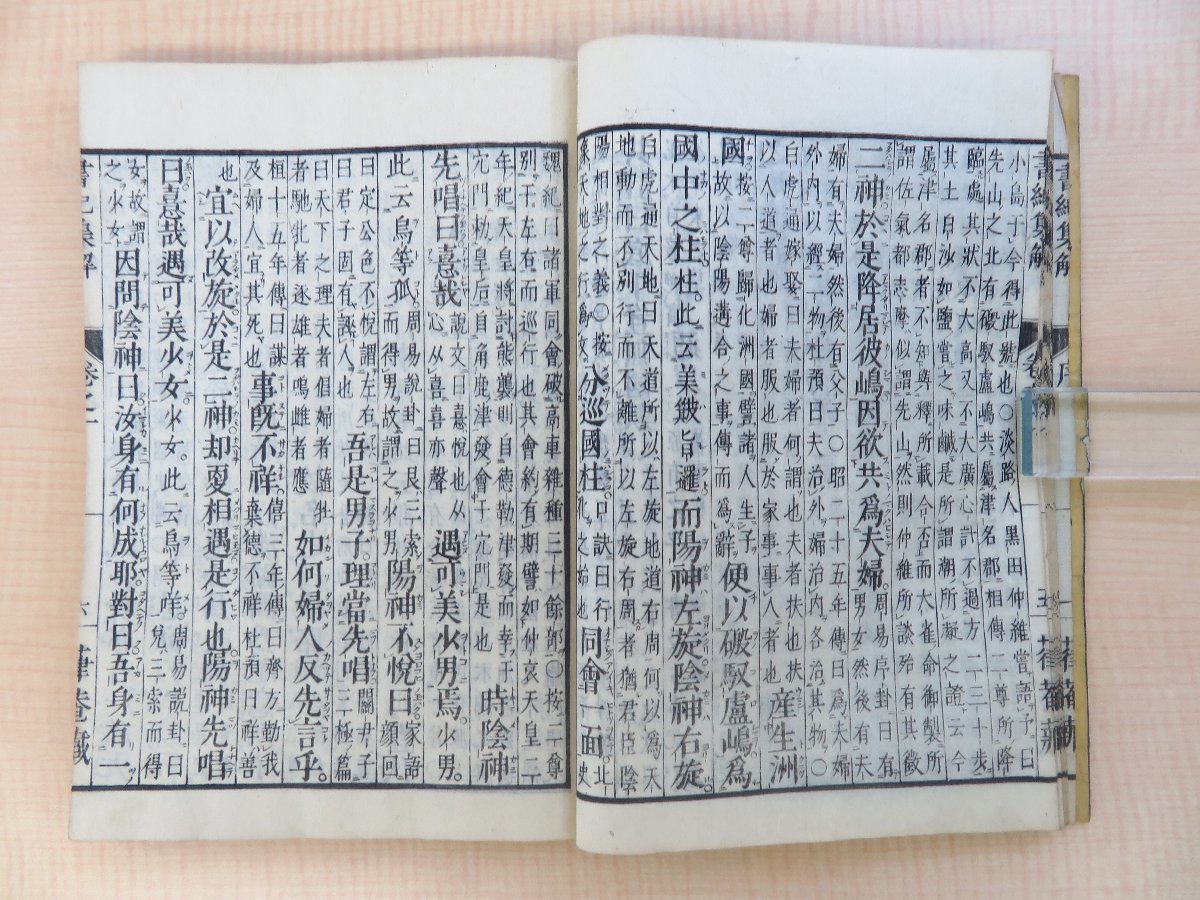 小島子今得此號也○淡路人黑田仲維嘗語予曰
先山之北有磤馭盧嶋共屬津名郡相傳二尊所降
臨處其狀不大高又不大廣心計不過方二三十步
其土白沙如鹽嘗之味鹹是所謂潮所凝之證云今
屬津名郡者不知與釋所載合否而大雀命御製所
謂佐氣都志摩似謂先山然則仲維所談殆有其徵
二神於是降居彼嶋因欲共爲夫婦周易序卦曰
有男女然後有夫
婦有夫婦然後有父子○昭二十五年傳曰爲夫婦
外內以經二物杜預曰夫治外婦治內各治其物○
白虎通嫁娶曰夫婦者何謂也夫者扶也扶
以人道者也婦者服也服於家事事人者也產生洲
國按二尊歸化洲國譬諸人生子
故以陰陽溝合之事傳而爲辭便以磤馭盧嶋爲
國中之柱柱此云美簸旨邏而陽神左旋陰神右旋
白虎通天地曰天道所以左旋地道右周何以爲天
地動而不別行而不離所以左旋右周者猶君臣陰
陽相對之義○按
分巡國柱口訣曰行
同會一面
魏紀曰諸軍同會破高車雜種三十餘部○按二尊
別于左右而巡行也其會約有期譬如仲哀天皇二
年紀天皇將討熊襲則自德勒津發而幸于
穴門勅皇后自角鹿津發會于穴門是也時陰神
先唱曰憙哉說文曰憙悅也从
心从喜喜亦聲遇可美少男焉少男
此云烏等孤周易說卦曰艮三索
而得男故謂之少男陽神不悅曰家語
顏回
曰定公色不悅謂左右
曰君子固有誣人也吾是男子理當先唱關尹子
三極篇
曰天下之理夫者倡婦者隨牡
者馳牝者逐雄者鳴雌者應如何婦人反先言乎
桓十五年傳曰謀
及婦人宜其死也事旣不祥僖三年傳曰齊方勤我
棄德不祥杜預曰祥善
也宜以改旋於是二神却更相遇是行也陽神先唱
曰憙哉遇可美少女少女此云烏等咩周易說卦曰
兌三索而得
女故謂
之少女因問陰神曰汝身有何成耶對曰吾身有一